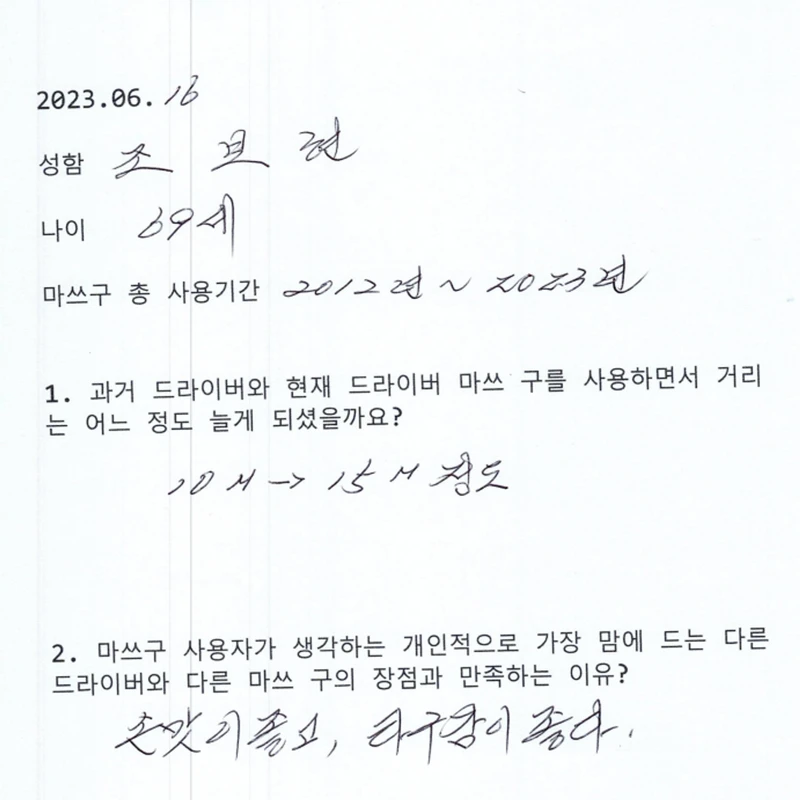 2023.06.16
성함 조 보 현
나이 69세
마쓰구 총 사용기간 2012년 ~ 2023년
1. 과거 드라이버와 현재 드라이버 마쓰 구를 사용하면서 거리
는 어느 정도 늘게 되셨을까요?
10M -> 15M 정도
2. 마쓰구 사용자가 생각하는 개인적으로 가장 맘에 드는 다른
드라이버와 다른 마쓰 구의 장점과 만족하는 이유?
손맛이 좋고, 타구감이 좋다.